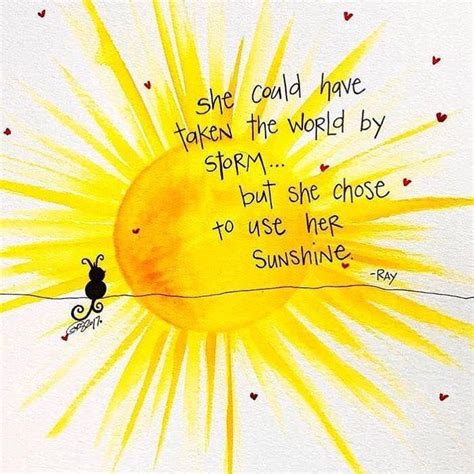 she could have
taken the world by
storm...
but she chose
to use her
sunshine.
-RAY